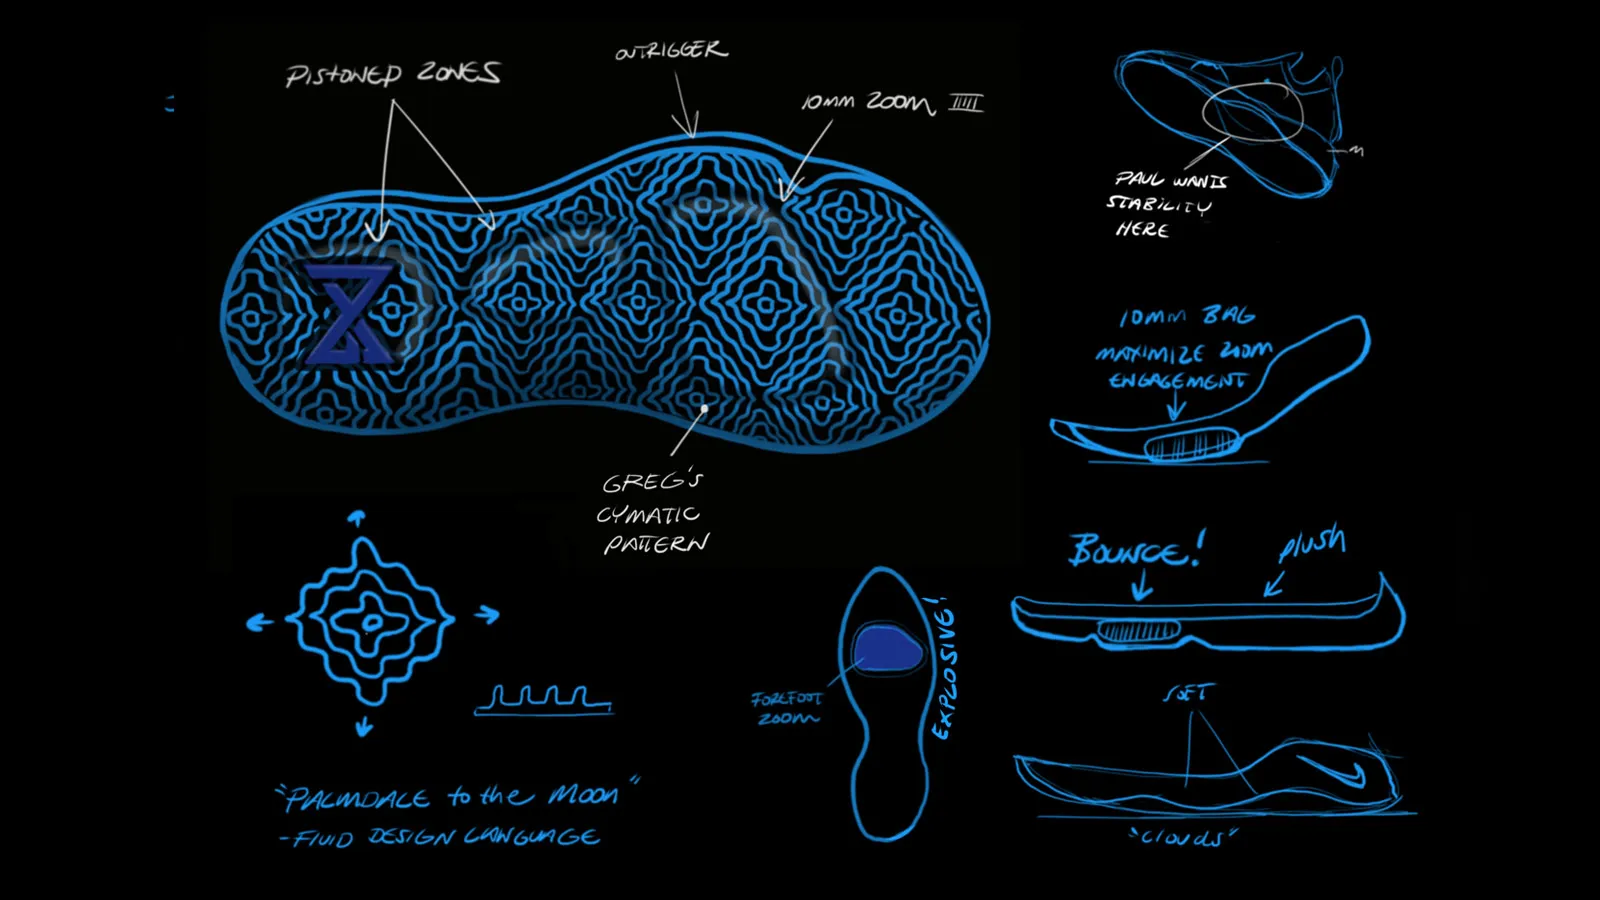 PISTONED ZONES
OUTRIGGER
10MM ZOOM
PAUL WANTS
STABILITY
HERE
GREG'S
CYMATIC
PATTERN
10MM BAG
MAXIMIZE ZOOM
ENGAGEMENT
BOUNCE!
PLUSH
FOREFOOT
ZOOM
EXPLOSIVE!
SOFT
"CLOUDS"
"PALMDALE to the MOON"
-FLUID DESIGN LANGUAGE